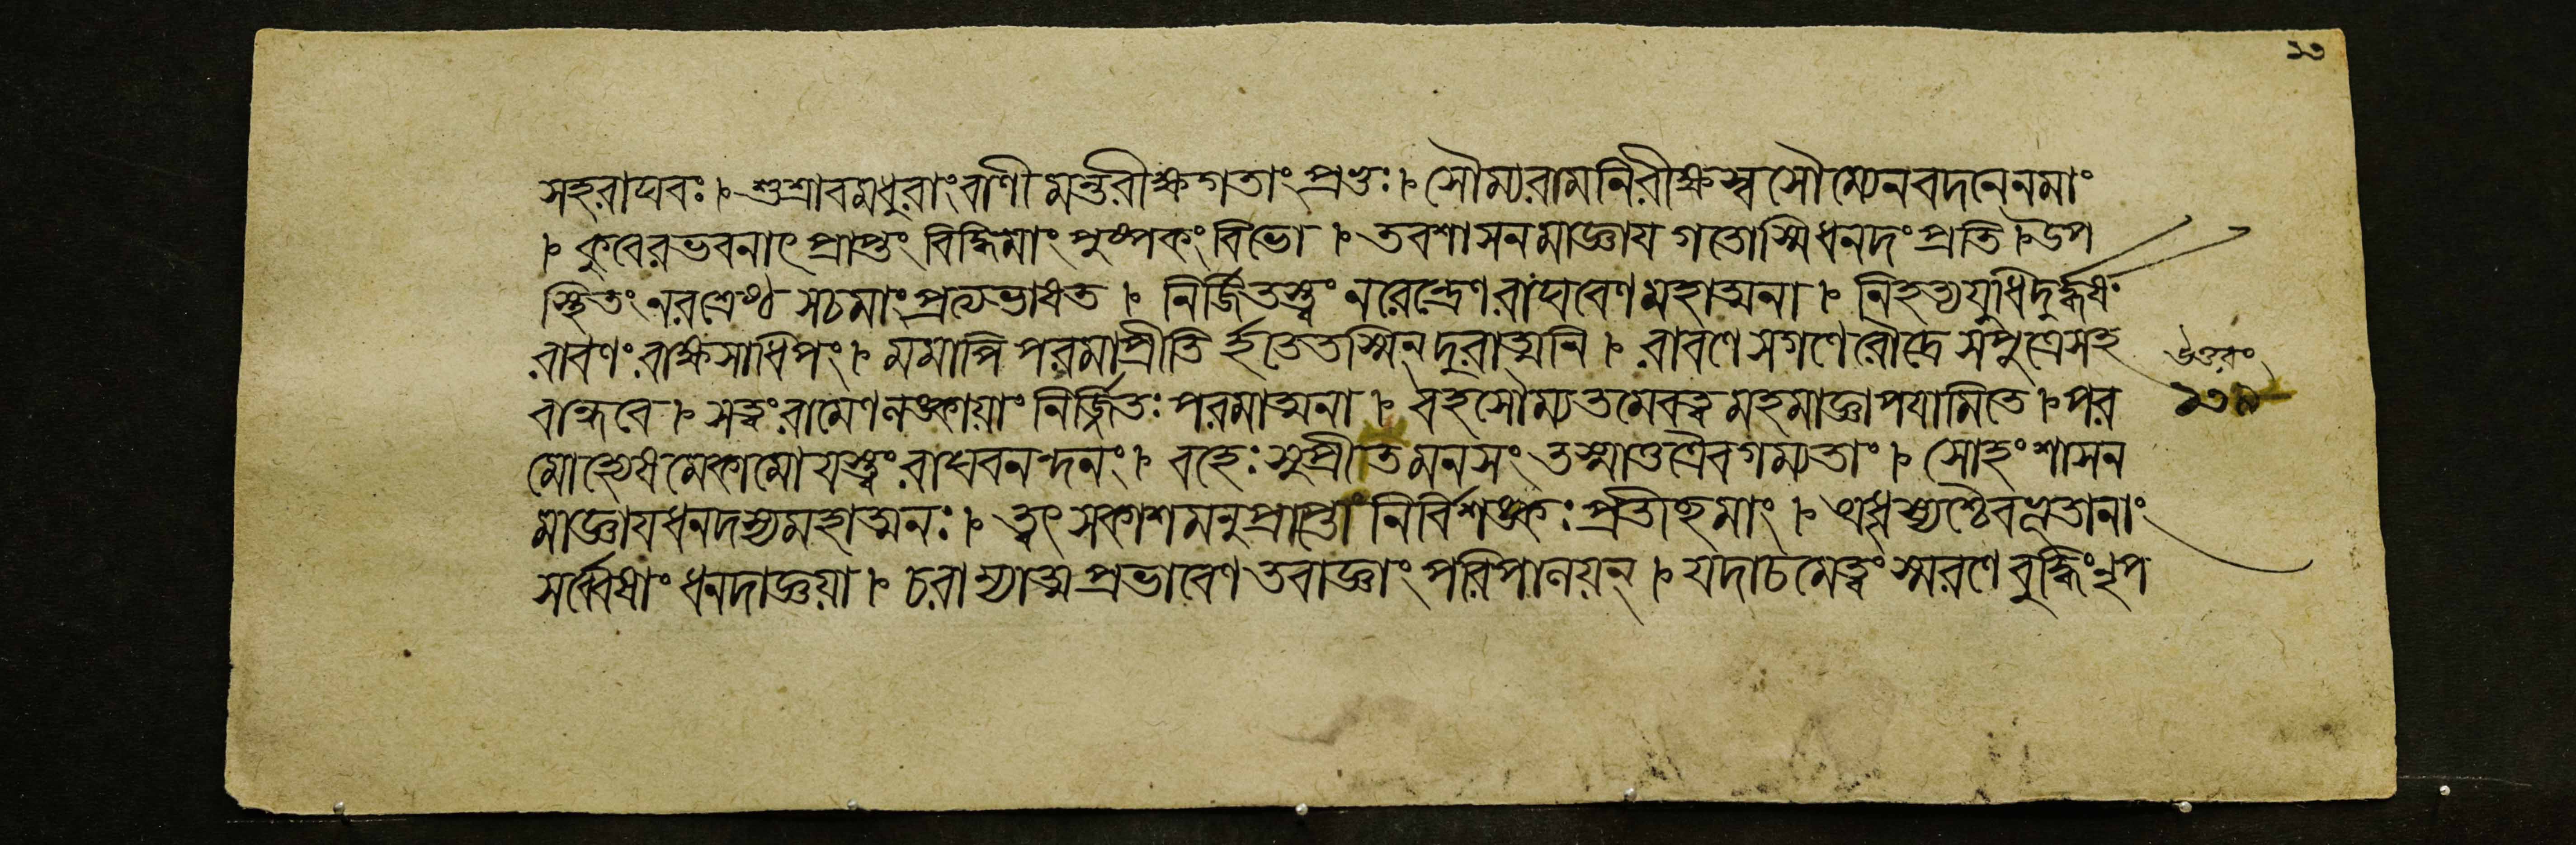 ১৩
সহরাঘবঃ। শুশ্রাবমধুরাংবাণী মন্তরীক্ষগতাংপ্রভুঃ। সৌম্যরামনিরীক্ষস্ব সৌম্যেনবদনেনমাং
। কুবেরভবনাৎ প্রাপ্তং বিদ্ধিমাং পুষ্পকংবিভো । তবশাসনমাজ্ঞায গতোস্মিধনদং প্রতি । উপ
স্থিতং নরশ্রেষ্ঠ সচমাংপ্রত্যভাষত । নির্জিতস্ত্বং নরেন্দ্রেণ রাঘবেণমহাত্মনা । নিহত্যযুধিদুর্দ্ধর্ষং
রাবণং রাক্ষসাধিপং। মমাপি পরমাপ্রীতি র্হতেতস্মিন্দুরাত্মনি । রাবণে সগণেরৌদ্রে সপুত্রেসহ
বান্ধবে । সত্বংরামেণলঙ্কায়াং নির্জিতঃ পরমাত্মনা । বহসৌম্যতমেবত্ব মহমাজ্ঞাপযামিতে । পর
মোহ্যেষমেকামো যস্ত্বং রাঘবনন্দনং। বহেঃ সুপ্রীতমনসং তস্মাত্তত্রৈবগম্যতাং। সোহংশাসন
মাজ্ঞায ধনদস্যমহাত্মনঃ। ত্বৎ সকাশমনুপ্রাপ্তো নির্বিশঙ্কঃ প্রতীচ্ছমাং। অধৃষ্যশ্চৈবভূতানাং
সর্ব্বেষাং ধনদাজ্ঞয়া । চরাম্যাত্ম প্রভাবেণ তবাজ্ঞাং পরিপালয়ন্ । যদাচমেত্বং স্মরণে বুদ্ধিংনৃপ
উত্তরং